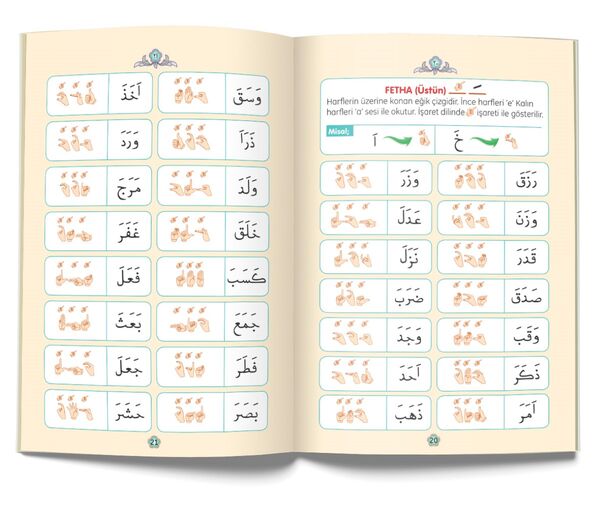 ٢٠
FETHA (Üstün)
Harflerin üzerine konan eğik çizgidir. İnce harfleri 'e' Kalın
harfleri 'a' sesi ile okutur. İşaret dilinde işareti ile gösterilir.
Misal;
خَ اَ
رَزَقَ وَزَرَ
وَزَنَ عَدَلَ
قَدَرَ نَزَلَ
صَدَقَ ضَرَبَ
وَقَبَ وَجَدَ
ذَكَرَ اَحَدَ
اَمَرَ ذَهَبَ
20
٢١
وَسَقَ اَخَذَ
ذَرَاَ وَرَدَ
وَلَدَ مَرَجَ
خَلَقَ غَفَرَ
كَسَبَ فَعَلَ
جَمَعَ بَعَثَ
فَطَرَ جَعَلَ
بَصَرَ حَشَرَ
21